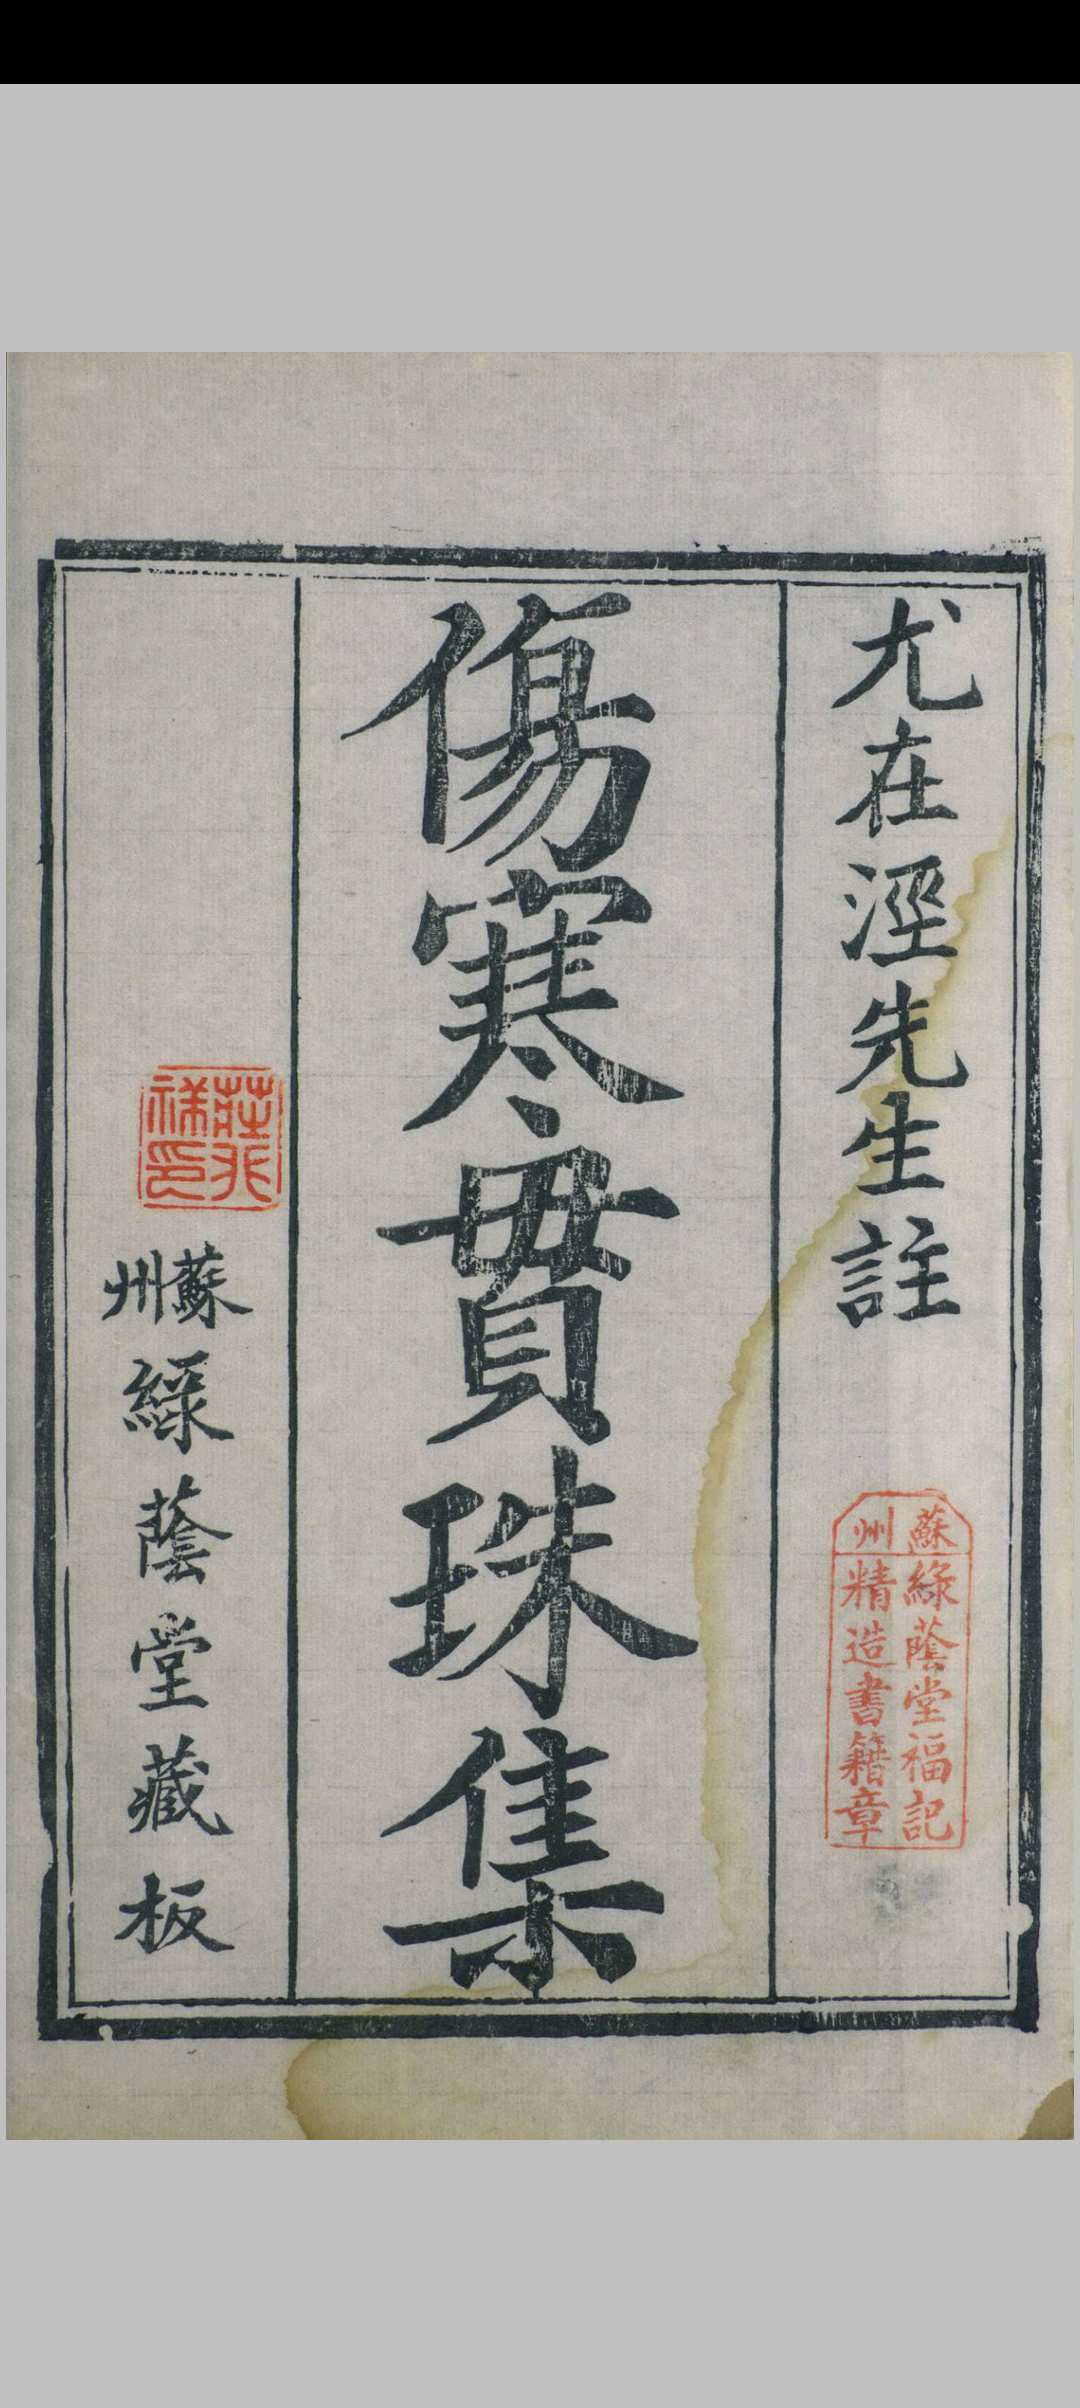 尤在涇先生註
蘇州
綠蔭堂福記
精造書籍章
傷寒貫珠集
蘇州綠蔭堂藏板